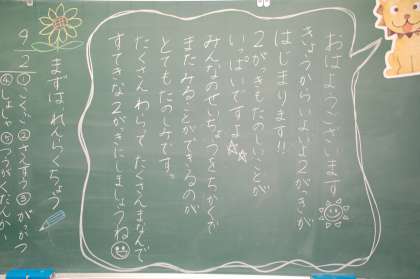 おはようございます
きょうからいよいよ2がっきが
はじまります!!
2がっきもたのしいことが
いっぱいですよ
みんなのせいちょうをちかくで
またみることができるのが
とてもたのしみです。
たくさんわらって たくさんまなんで
すてきな2がっきにしましょうね
まずは れんらくちょう
9/2
①こくご ②さんすう ③がっかつ
④しょしゃ ⑤